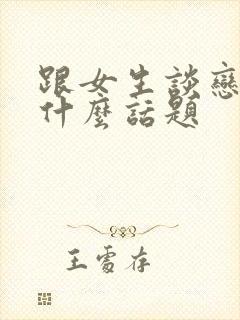 跟女生談戀
什麼話題
王雪存